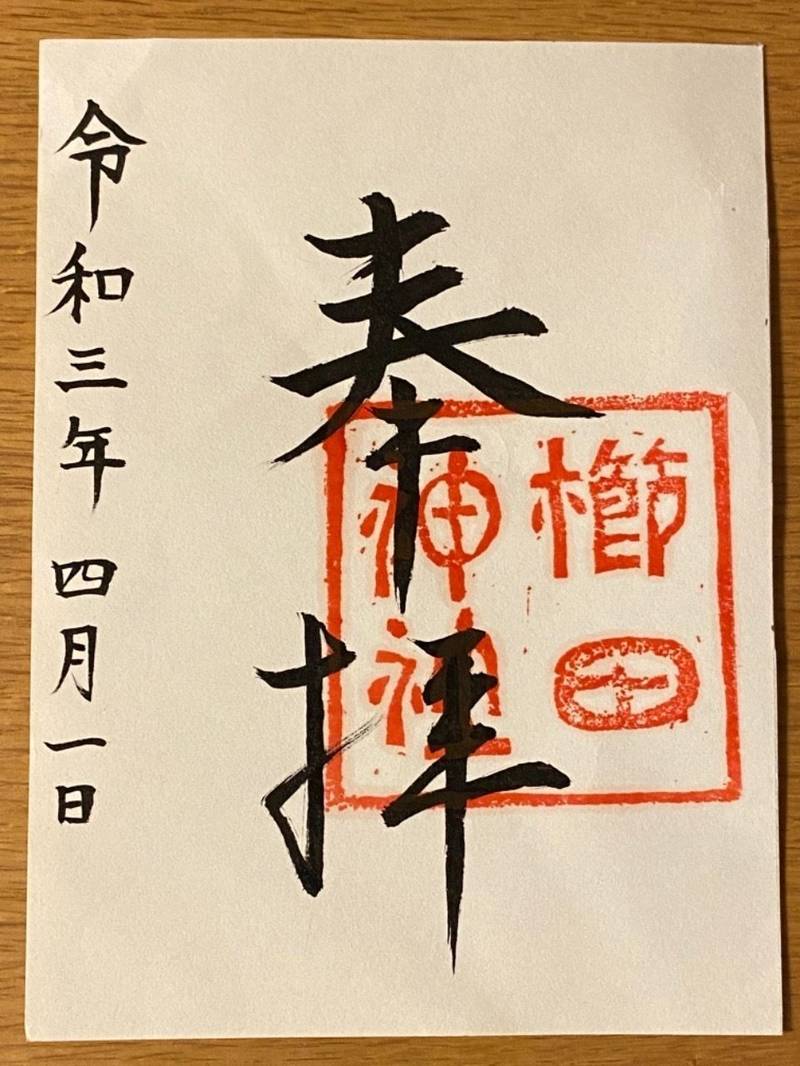 奉拝
櫛田
神社
令和三年 四月一日